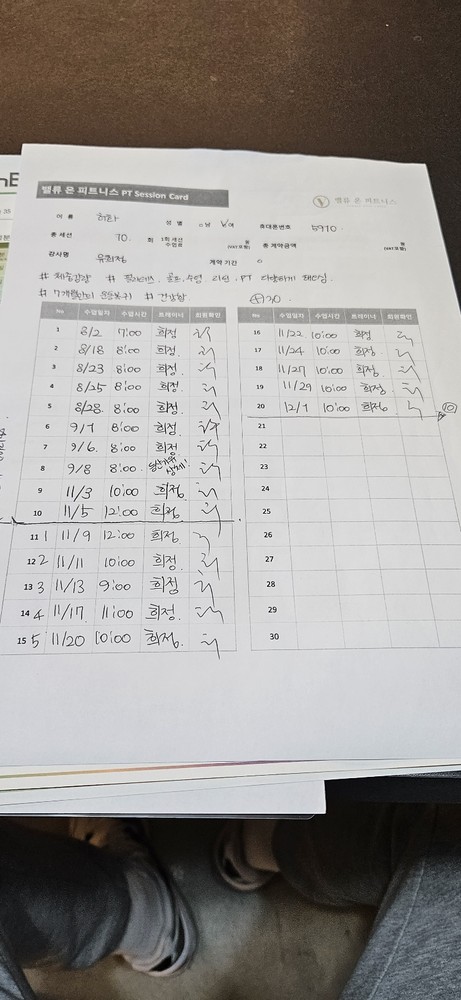 밸류 온 피트니스 PT Session Card
밸류 온 피트니스
이 름 허라 성 별 □남 ☑여 휴대폰번호 5910
총 세션 70. 회 1회 세션 수업료 원 (VAT포함) 총 계약금액 원 (VAT포함)
강사명 유희정 계약 기간 0
# 체중감량 # 필라테스. 골프. 수영. PT 다양하게 해보심.
# 7개월만의 운동복귀 # 건강함
No 수업일자 수업시간 트레이너 회원확인
1 8/2 7:00 희정
2 8/18 8:00 희정.
3 8/23 8:00 희정.
4 8/25 8:00 희정.
5 8/28. 8:00 희정.
6 9/1 8:00 희정.
7 9/6. 8:00 희정
8 9/8 8:00.
9 11/3 10:00 희정.
10 11/5 12:00 희정.
11 1 11/9 12:00 희정.
12 2 11/11 10:00 희정
13 3 11/13 9:00 희정
14 4 11/17. 11:00 희정.
15 5 11/20 10:00 희정.
No 수업일자 수업시간 트레이너 회원확인
16 11/22 10:00 희정
17 11/24 10:00 희정.
18 11/27 10:00 희정.
19 11/29 10:00 희정.
20 12/1 10:00 희정. ⑩
21
22
23
24
25
26
27
28
29
30